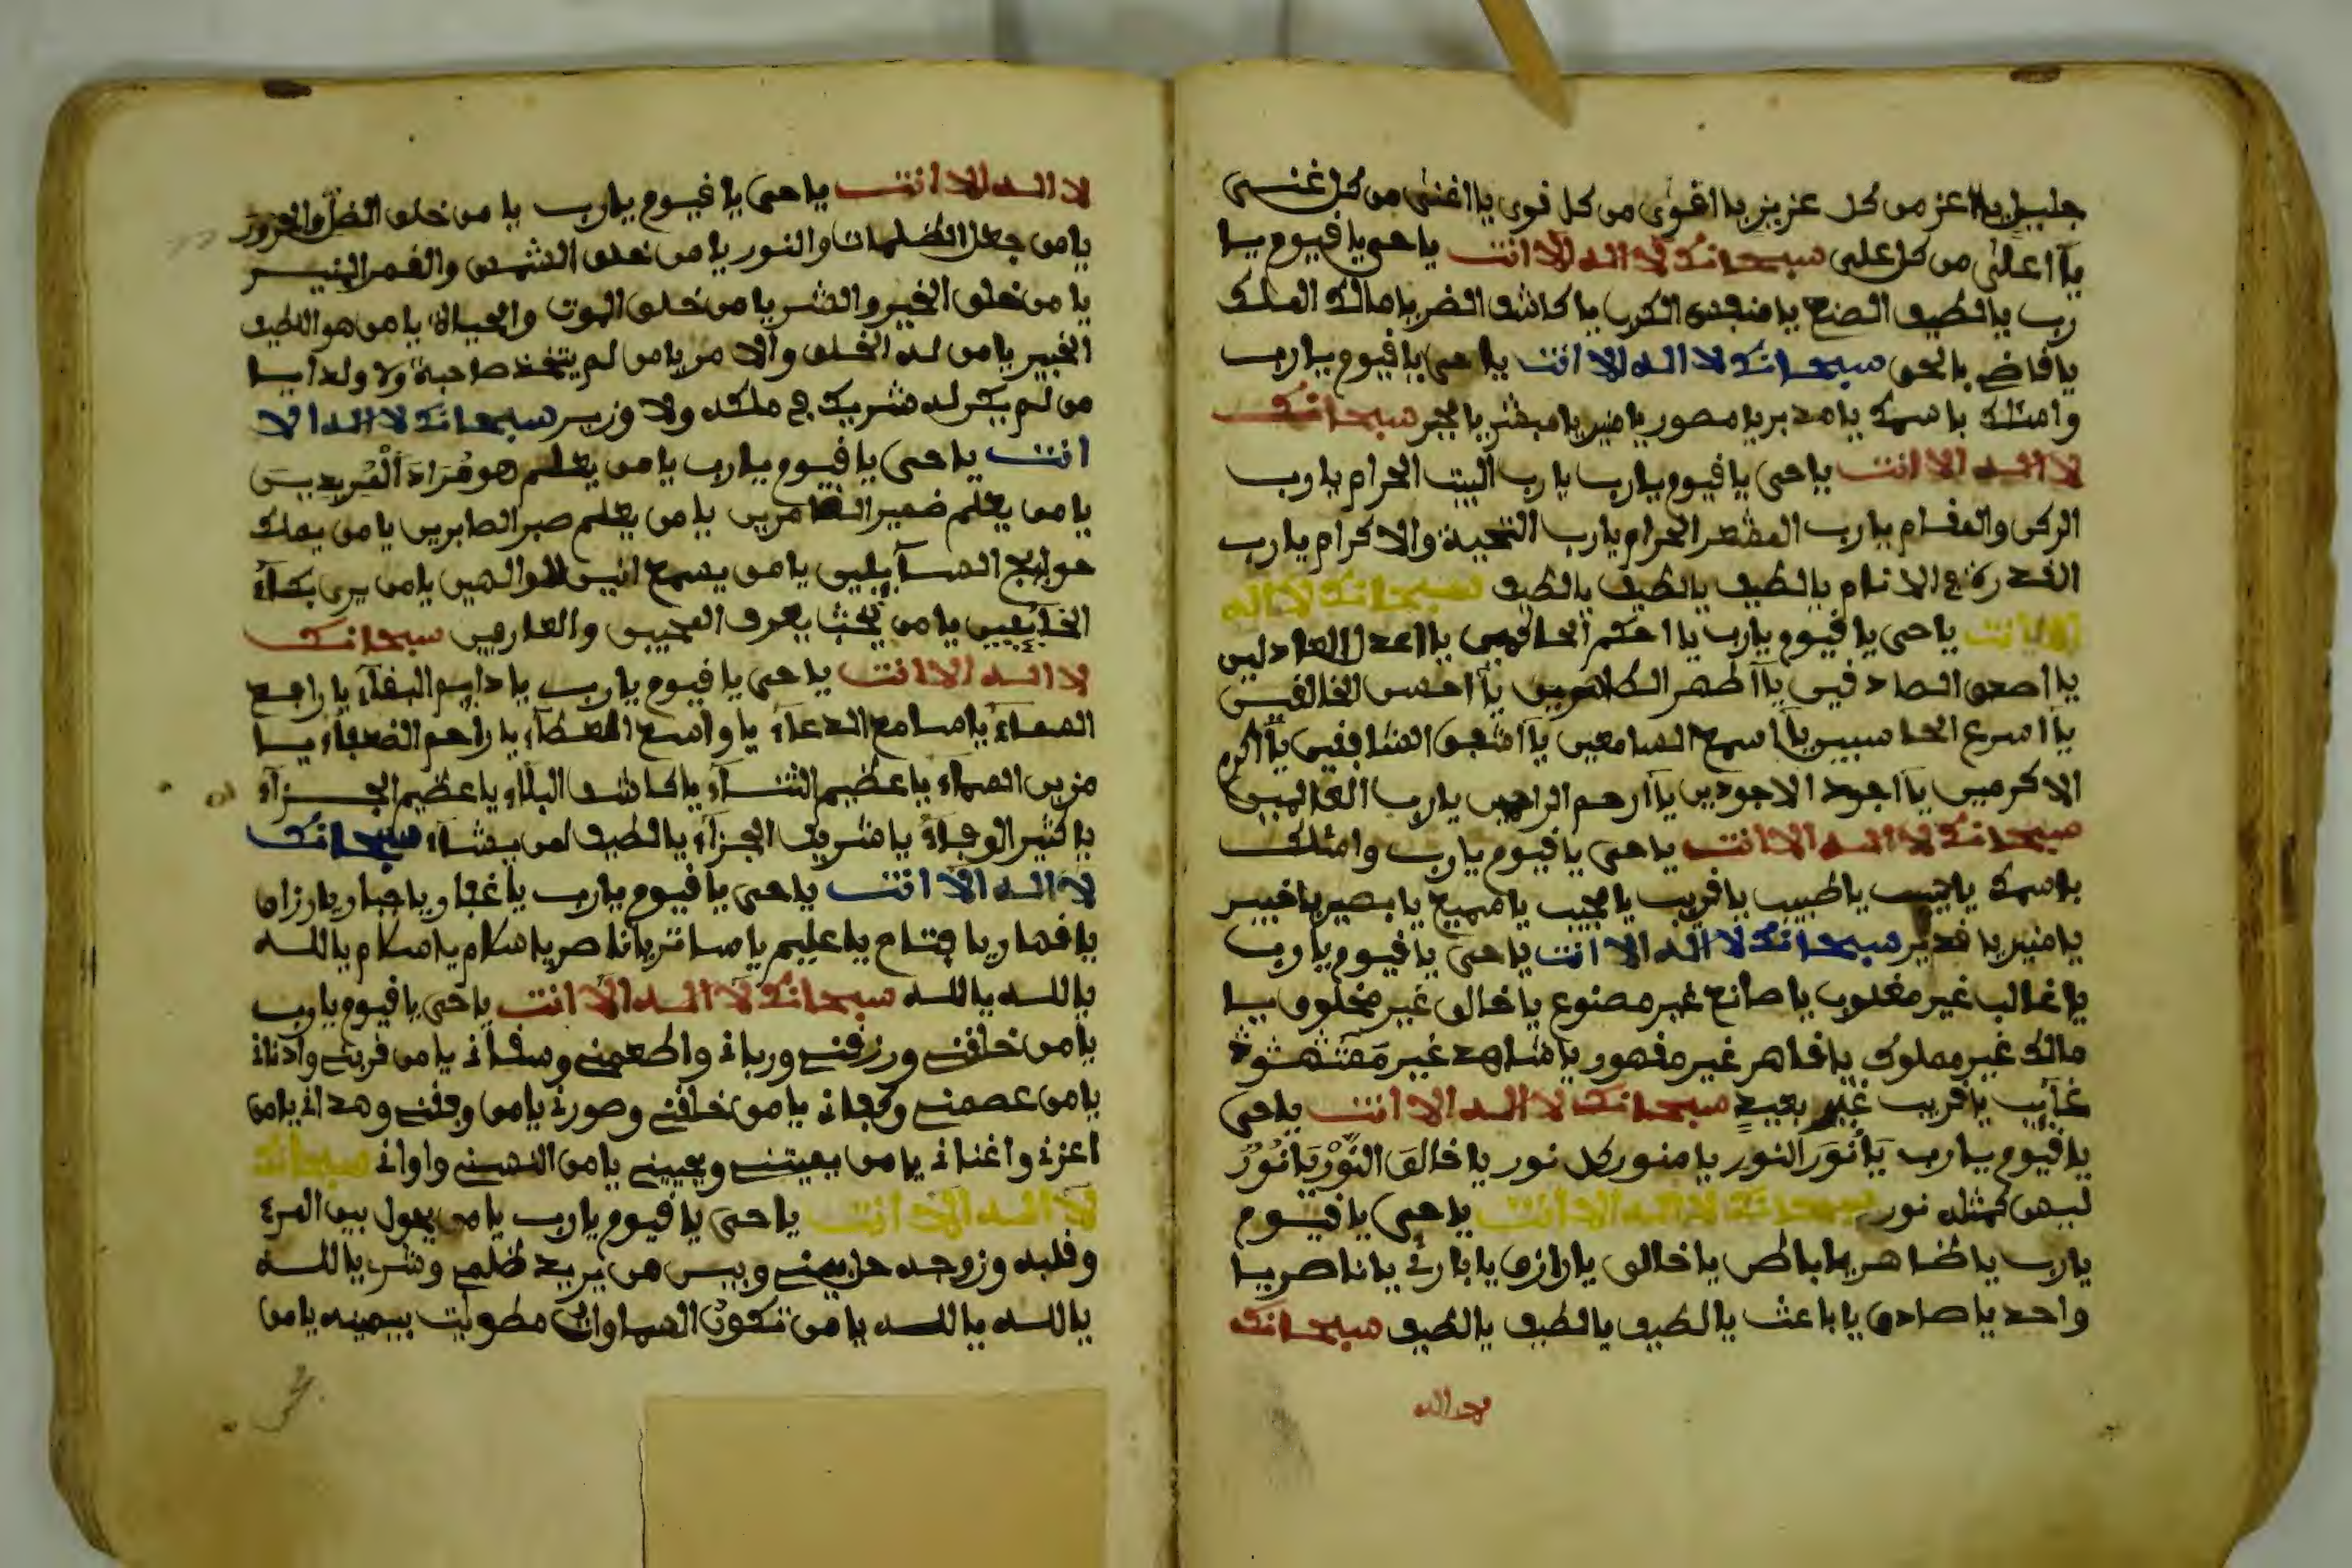 جليل يا اعز من كل عزيز يا اقوى من كل قوى يا اغنى من كل غنى
يا اعلى من كل على سبحانك لا اله الا انت يا حى يا قيوم يا
رب يا لطيف الصنع يا منفدى الكرب يا كاشف الضر يا مالك الملك
يا قاض بالحق سبحانك لا اله الا انت يا حى يا قيوم يا رب
واسئلك باسمك يا مدبر يا مصور يا منير يا مبشر يا مجير سبحانك
لا اله الا انت يا حى يا قيوم يا رب يا رب البيت الحرام يا رب
الركن والمقام يا رب المشعر الحرام يا رب التحية والاكرام يا رب
القدرة ع الانام يا لطيف يا لطيف يا لطيف سبحانك لا اله
الا انت يا حى يا قيوم يا رب يا احكم الحاكمين يا اعدل العادلين
يا اصدق الصادقين يا اطهر الطاهرين يا احسن الخالقين
يا اسرع الحاسبين يا اسمع السامعين يا اشفق الشافقين يا اكرم
الاكرمين يا اجود الاجودين يا ارحم الراحمين يا رب العالمين
سبحانك لا اله الا انت يا حى يا قيوم يا رب واسئلك
باسمك يا حبيب يا طبيب يا قريب يا مجيب يا سميع يا بصير يا خبير
يا منير يا قدير سبحانك لا اله الا انت يا حى يا قيوم يا رب
يا غالب غير مغلوب يا صانع غير مصنوع يا خالق غير مخلوق يا
مالك غير مملوك يا قاهر غير مقهور يا شاهد غير
غائب يا قريب غير بعيد سبحانك لا اله الا انت يا حى
يا قيوم يا رب يا نور النور يا منور كل نور يا خالق النور يا نور
ليس كمثله نور سبحانك لا اله الا انت يا حى يا قيوم
يا رب يا ظاهر يا باطن يا خالق يا رازق يا بارئ يا ناصر يا
واحد يا صادق يا باعث يا لطيف يا لطيف يا لطيف سبحانك
لا اله الا انت يا حى يا قيوم يا رب يا من خلق الظل والحرور
يا من جعل الظلمات والنور يا من خلق الشمس والقمر المنير
يا من خلق الخير والشر يا من خلق الموت والحياة يا من هو اللطيف
الخبير يا من له الخلق والامر يا من لم يتخذ صاحبة ولا ولدا يا
من لم يكن له شريك ج ملكه ولا وزير سبحانك لا اله الا
انت يا حى يا قيوم يا رب يا من يعلم هو مراد المريدين
يا من يعلم ضمير الضامرين يا من يعلم صبر الصابرين يا من يملك
حوايج السآيلين يا من يسمع انين الوالهين يا من يرى بكاء
الخائفين يا من يحب يعرف المحبين والعارفين سبحانك
لا اله الا انت يا حى يا قيوم يا رب يا دايم البقآء يا رافع
السماء يا سامع الدعآء يا واسع العطآء يا راحم الضعفاء يا
مزين السماء يا عظيم الثنآء يا كاشف البلاء يا عظيم الجزآء
يا كثير الوفاء يا شريف الجزآء يا لطيف لمن يشآء سبحانك
لا اله الا انت يا حى يا قيوم يا رب يا غفار يا جبار يا رزاق
يا قهار يا فتاح يا عليم يا ساتر يا ناصر يا سلام يا سلام يا الله
يا الله يا الله سبحانك لا اله الا انت يا حى يا قيوم يا رب
يا من خلقنى ورزقنى وربانى واطعمنى وسقانى يا من قربنى وادنانى
يا من عصمنى وكفانى يا من خلقنى وصورنى يا من وفقنى وهدانى يا من
اعزنى واغنانى يا من يميتنى ويحيينى يا من انسنى واوانى سبحانك
لا اله الا انت يا حى يا قيوم يا رب يا من يحول بين المرء
وقلبه وزوجه حل بينى وبين من يريد ظلمى وشر يا الله
يا الله يا الله يا من تكون السماوات مطويت بيمينه يا من